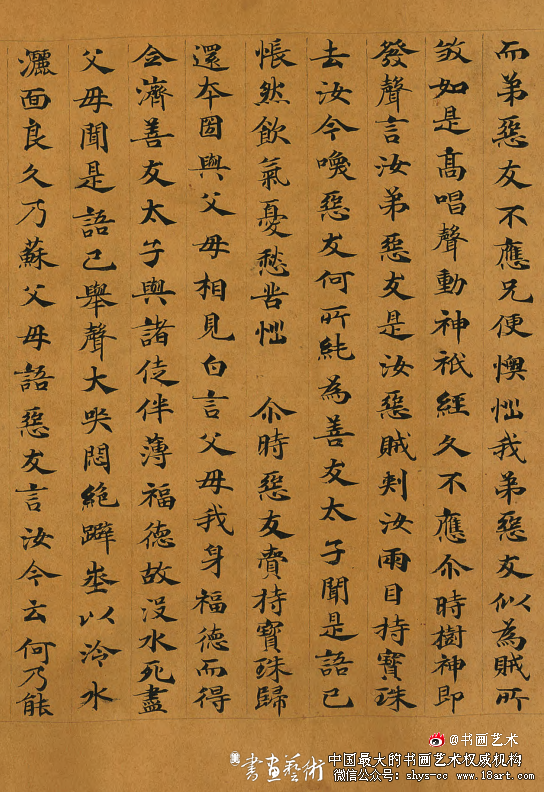 而弟惡友不應兄便懊惱我弟惡友似為賊所
煞如是高唱聲動神祇經久不應尒時樹神即
發聲言汝弟惡友是汝惡賊刾汝兩目持寶珠
去汝今喚惡友何所純為善友太子聞是語已
悵然飲氣憂愁苦惱 尒時惡友賫持寶珠歸
還本國與父母相見白言父母我身福德而得
全濟善友太子與諸徒伴薄福德故没水死盡
父母聞是語已舉聲大哭悶絕躃𡋲以冷水
灑面良久乃蘇父母語惡友言汝今云何乃能
@书画艺术
書画藝術
中国最大的书画艺术权威机构
微信公众号：shys-cc www.18art.com